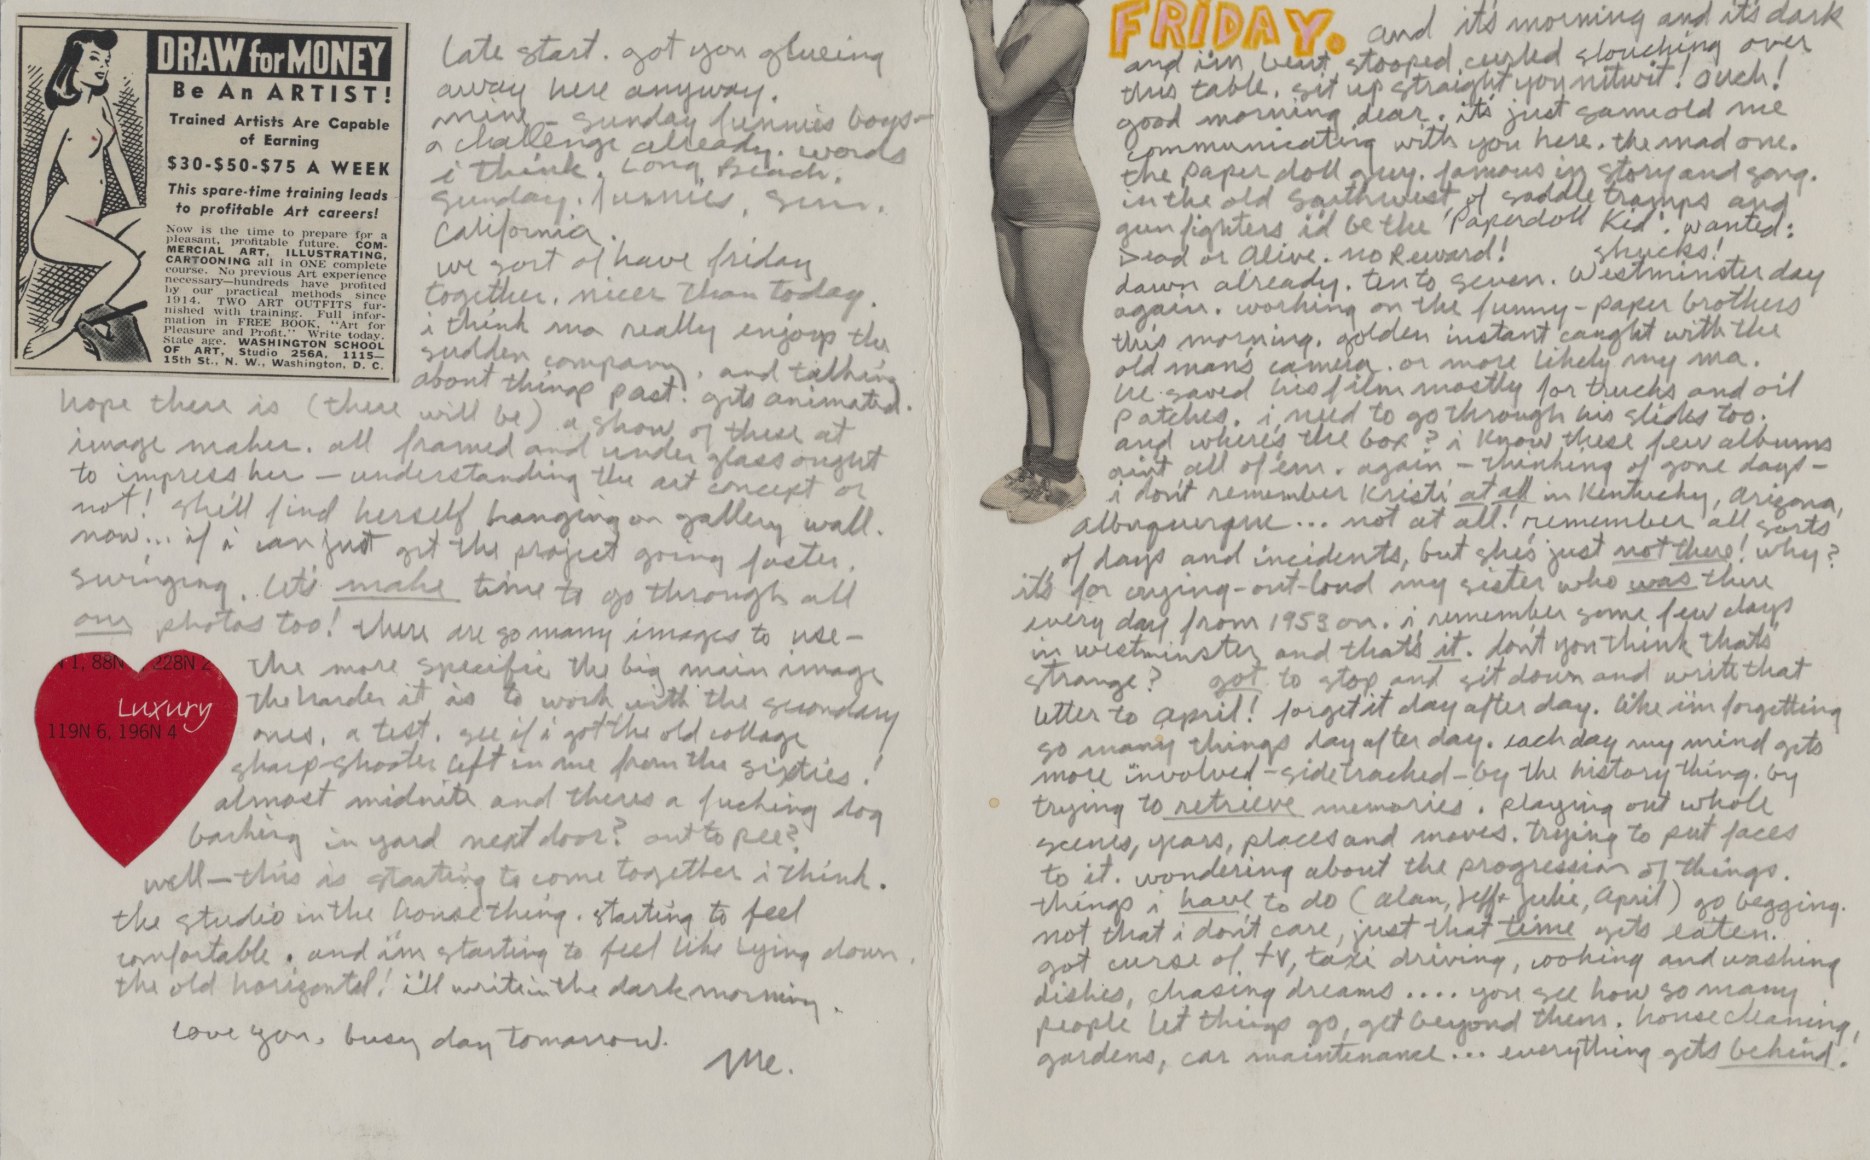 DRAW for MONEY
Be An ARTIST!
Trained Artists Are Capable
of Earning
$30-$50-$75 A WEEK
This spare-time training leads
to profitable Art careers!
Now is the time to prepare for a
pleasant, profitable future. COM-
MERCIAL ART, ILLUSTRATING,
CARTOONING all in ONE complete
course. No previous Art experience
necessary—hundreds have profited
by our practical methods since
1914. TWO ART OUTFITS fur-
nished with training. Full infor-
mation in FREE BOOK, "Art for
Pleasure and Profit." Write today.
State age. WASHINGTON SCHOOL
OF ART, Studio 256A, 1115—
15th St., N. W., Washington, D. C.
late start. got you glueing
away here anyway.
mine – sunday funnies boys –
a challenge already. words
i think. Long Beach.
sunday. funnies. sun.
California.
we sort of have friday
together. nicer than today.
i think ma really enjoys the
sudden company. and talking
about things past. gets animated.
hope there is (there will be) a show of these at
image maker. all framed and under glass ought
to impress her – understanding the art concept or
not! she'll find herself hanging on gallery wall.
now... if i can just get the project going faster.
swinging. let's make time to go through all
our photos too! there are so many images to use –
the more specific the big main image
the harder it is to work with the secondary
ones. a test. see if i got the old collage
sharp-shooter left in me from the sixties!
almost midnite and theres a fucking dog
barking in yard next door? out to pee?
well – this is starting to come together i think.
the studio in the house thing. starting to feel
comfortable. and i'm starting to feel like lying down.
the old horizontal! i'll write in the dark morning.
love you. busy day tomorrow.
Me.
N 1, 88N 228N 2
Luxury
119N 6, 196N 4
FRIDAY. and it's morning and it's dark
and i'm bent stooped curled slouching over
this table. sit up straight you nitwit! ouch!
good morning dear. it's just same old me
communicating with you here. the mad one.
the paper doll guy. famous in story and song.
in the old southwest of saddle tramps and
gunfighters i'd be the 'Paperdoll Kid'. wanted:
Dead or Alive. no Reward! shucks!
dawn already. ten to seven. Westminster day
again. working on the funny-paper brothers
this morning. golden instant caught with the
old man's camera. or more likely my ma.
he saved his film mostly for trucks and oil
patches. i need to go through his slides too.
and where's the box? i know these few albums
ain't all of em. again – thinking of gone days –
i don't remember Kristi at all in Kentucky, Arizona,
Albuquerque... not at all! remember all sorts
of days and incidents, but she's just not there! why?
it's for crying-out-loud my sister who was there
every day from 1953 on. i remember some few days
in westminster and that's it. don't you think that's
strange? got to stop and sit down and write that
letter to April! forget it day after day. like i'm forgetting
so many things day after day. each day my mind gets
more involved – sidetracked – by the history thing. by
trying to retrieve memories. playing out whole
scenes, years, places and moves. trying to put faces
to it. wondering about the progression of things.
things i have to do (Alan, Jeff + Julie, April) go begging.
not that i don't care, just that time gets eaten.
got curse of tv, taxi driving, cooking and washing
dishes, chasing dreams.... you see how so many
people let things go, get beyond them. housecleaning,
gardens, car maintenance... everything gets behind!